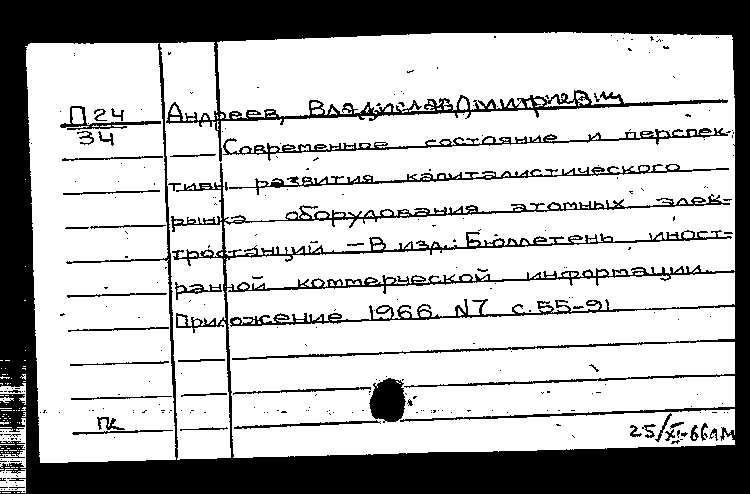 П 24 Андреев, Владислав Дмитриевич
34
Современное состояние и перспек-
тивы развития капиталистического
рынка оборудования атомных элек-
тростанций. – В изд.: Бюллетень иност-
ранной коммерческой информации.
Приложение 1966. N7 с. 55-91
ПК
25/XI-66г